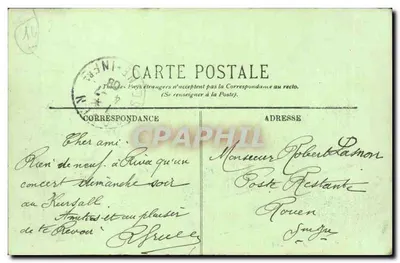 16
CARTE POSTALE
Tous les Pays étrangers n'acceptent pas la Correspondance au recto.
(Se renseigner à la Poste)
CORRESPONDANCE
ADRESSE
Cher ami.
Rien de neuf à qu'un
concert dimanche soir
au Kursall.
Amitiés et au plaisir
de te Revoir
Monsieur Robert
Poste Restante
Rouen